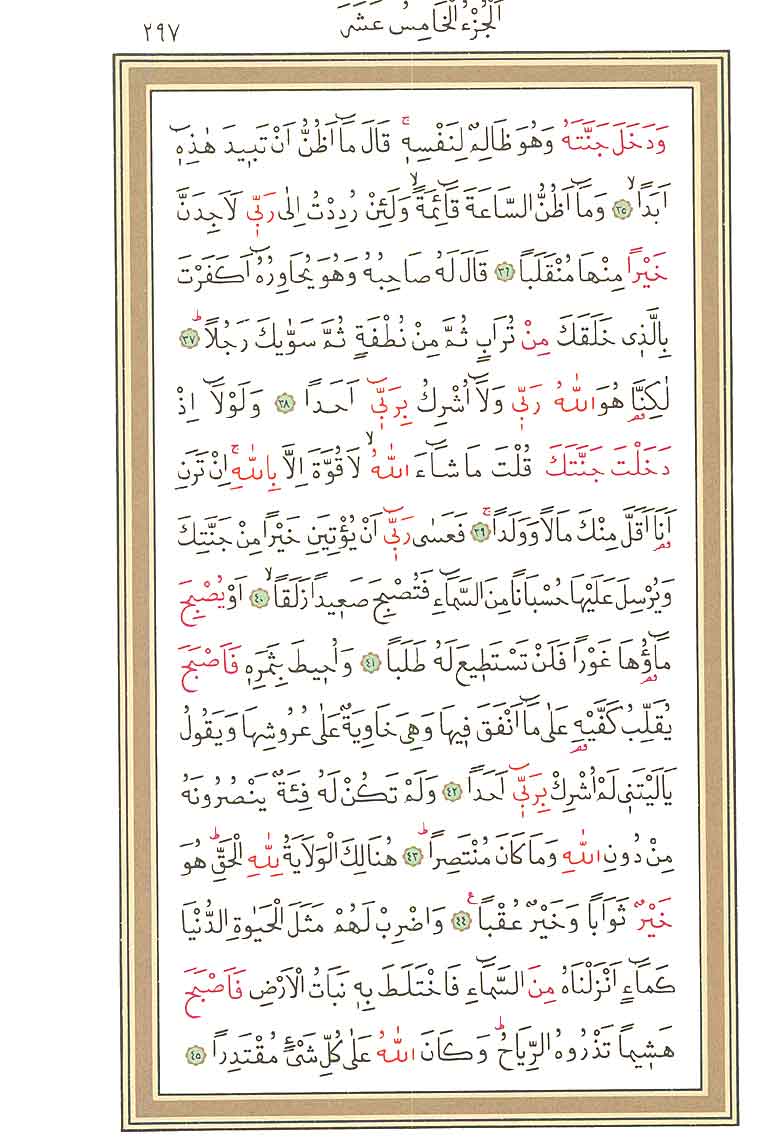 اَلْجُزْءُ الْخَامِسُ عَشَرَ
٢٩٧
وَدَخَلَ جَنَّتَهُ وَهُوَ ظَالِمٌ لِنَفْسِهٖۚ قَالَ مَٓا اَظُنُّ اَنْ تَبٖيدَ هٰذِهٖٓ
اَبَدًاۙ ٣٥ وَمَٓا اَظُنُّ السَّاعَةَ قَٓائِمَةًۙ وَلَئِنْ رُدِدْتُ اِلٰى رَبّٖى لَاَجِدَنَّ
خَيْرًا مِنْهَا مُنْقَلَبًا ٣٦ قَالَ لَهُ صَاحِبُهُ وَهُوَ يُحَاوِرُهُٓ اَكَفَرْتَ
بِالَّذٖى خَلَقَكَ مِنْ تُرَابٍ ثُمَّ مِنْ نُطْفَةٍ ثُمَّ سَوّٰيكَ رَجُلًاؕ ٣٧
لٰكِنَّا۬ هُوَ اللّٰهُ رَبّٖى وَلَٓا اُشْرِكُ بِرَبّٖٓى اَحَدًا ٣٨ وَلَوْلَٓا اِذْ
دَخَلْتَ جَنَّتَكَ قُلْتَ مَا شَٓاءَ اللّٰهُۙ لَا قُوَّةَ اِلَّا بِاللّٰهِۚ اِنْ تَرَنِ
اَنَا۬ اَقَلَّ مِنْكَ مَالًا وَوَلَدًاۚ ٣٩ فَعَسٰى رَبّٖٓى اَنْ يُؤْتِيَنِ خَيْرًا مِنْ جَنَّتِكَ
وَيُرْسِلَ عَلَيْهَا حُسْبَانًا مِنَ السَّمَٓاءِ فَتُصْبِحَ صَعٖيدًا زَلَقًاۙ ٤٠ اَوْ يُصْبِحَ
مَٓاؤُ۬هَا غَوْرًا فَلَنْ تَسْتَطٖيعَ لَهُ طَلَبًا ٤١ وَاُحٖيطَ بِثَمَرِهٖ فَاَصْبَحَ
يُقَلِّبُ كَفَّيْهِ عَلٰى مَٓا اَنْفَقَ فٖيهَا وَهِىَ خَاوِيَةٌ عَلٰى عُرُوشِهَا وَيَقُولُ
يَالَيْتَنٖى لَمْ اُشْرِكْ بِرَبّٖٓى اَحَدًا ٤٢ وَلَمْ تَكُنْ لَهُ فِئَةٌ يَنْصُرُونَهُ
مِنْ دُونِ اللّٰهِ وَمَا كَانَ مُنْتَصِرًاؕ ٤٣ هُنَالِكَ الْوَلَايَةُ لِلّٰهِ الْحَقِّؕ هُوَ
خَيْرٌ ثَوَابًا وَخَيْرٌ عُقْبًا ٤٤ وَاضْرِبْ لَهُمْ مَثَلَ الْحَيٰوةِ الدُّنْيَا
كَمَٓاءٍ اَنْزَلْنَاهُ مِنَ السَّمَٓاءِ فَاخْتَلَطَ بِهٖ نَبَاتُ الْاَرْضِ فَاَصْبَحَ
هَشٖيمًا تَذْرُوهُ الرِّيَاحُؕ وَكَانَ اللّٰهُ عَلٰى كُلِّ شَىْءٍ مُقْتَدِرًا ٤٥